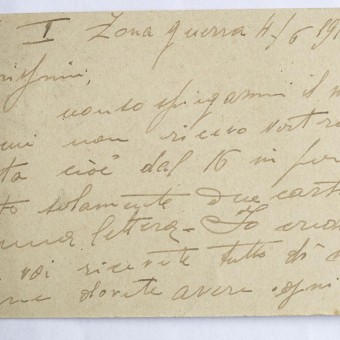 I Zona guerra 4/6 191
rissimi,
non so spiegarmi il m
cui non ricevo vostre
ta cioè dal 16 in
to solamente due cart
una lettera - Io
voi ricevete tutto di
dovete avere ogni